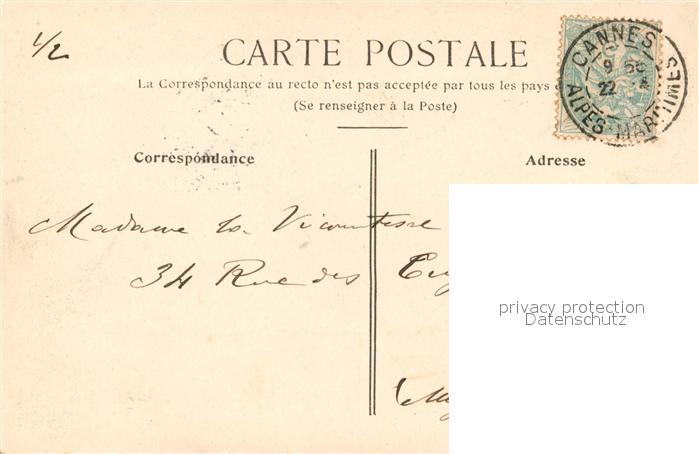 1/2
CARTE POSTALE
La Correspondance au recto n'est pas acceptée par tous les pays
(Se renseigner à la Poste)
CANNES
22
ALPES-MARITIMES
Correspondance
Adresse
Madame la Vicomtesse
34 Rue des
privacy protection
Datenschutz